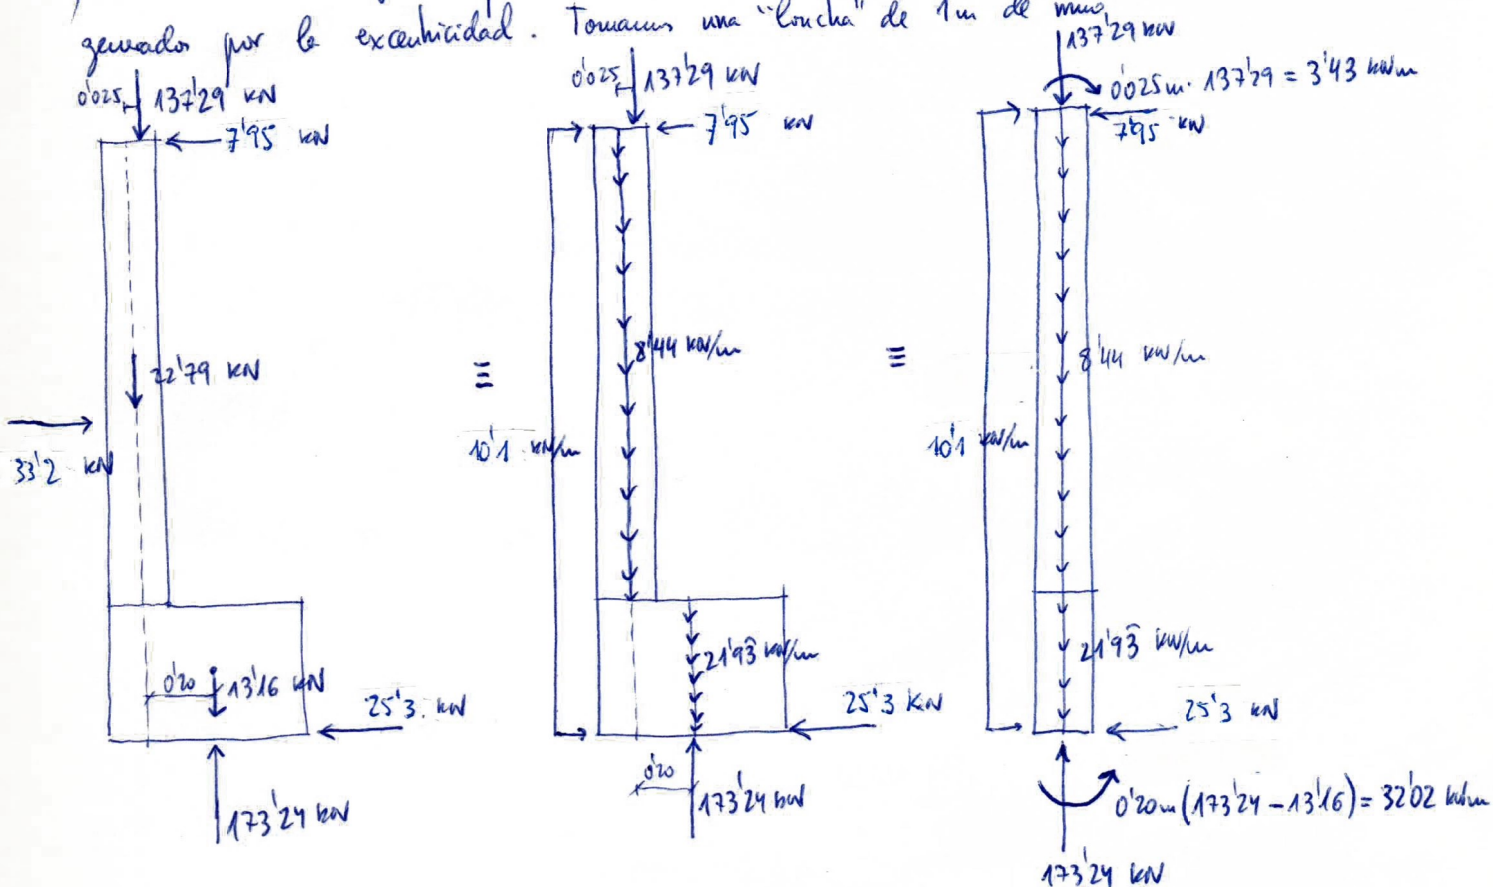 generados por la excentricidad. Tomamos una "loncha" de 1m de muro
0'025 137'29 kN
7'95 kN
22'79 kN
33'2 kN
0'20 13'16 kN
25'3 kN
173'24 kN
≡
0'025 137'29 kN
7'95 kN
8'44 kN/m
10'1 kN/m
21'93 kN/m
25'3 kN
0'20
173'24 kN
≡
137'29 kN
0'025m · 137'29 = 3'43 kNm
7'95 kN
8'44 kN/m
10'1 kN/m
21'93 kN/m
25'3 kN
0'20m (173'24 - 13'16) = 32'02 kNm
173'24 kN